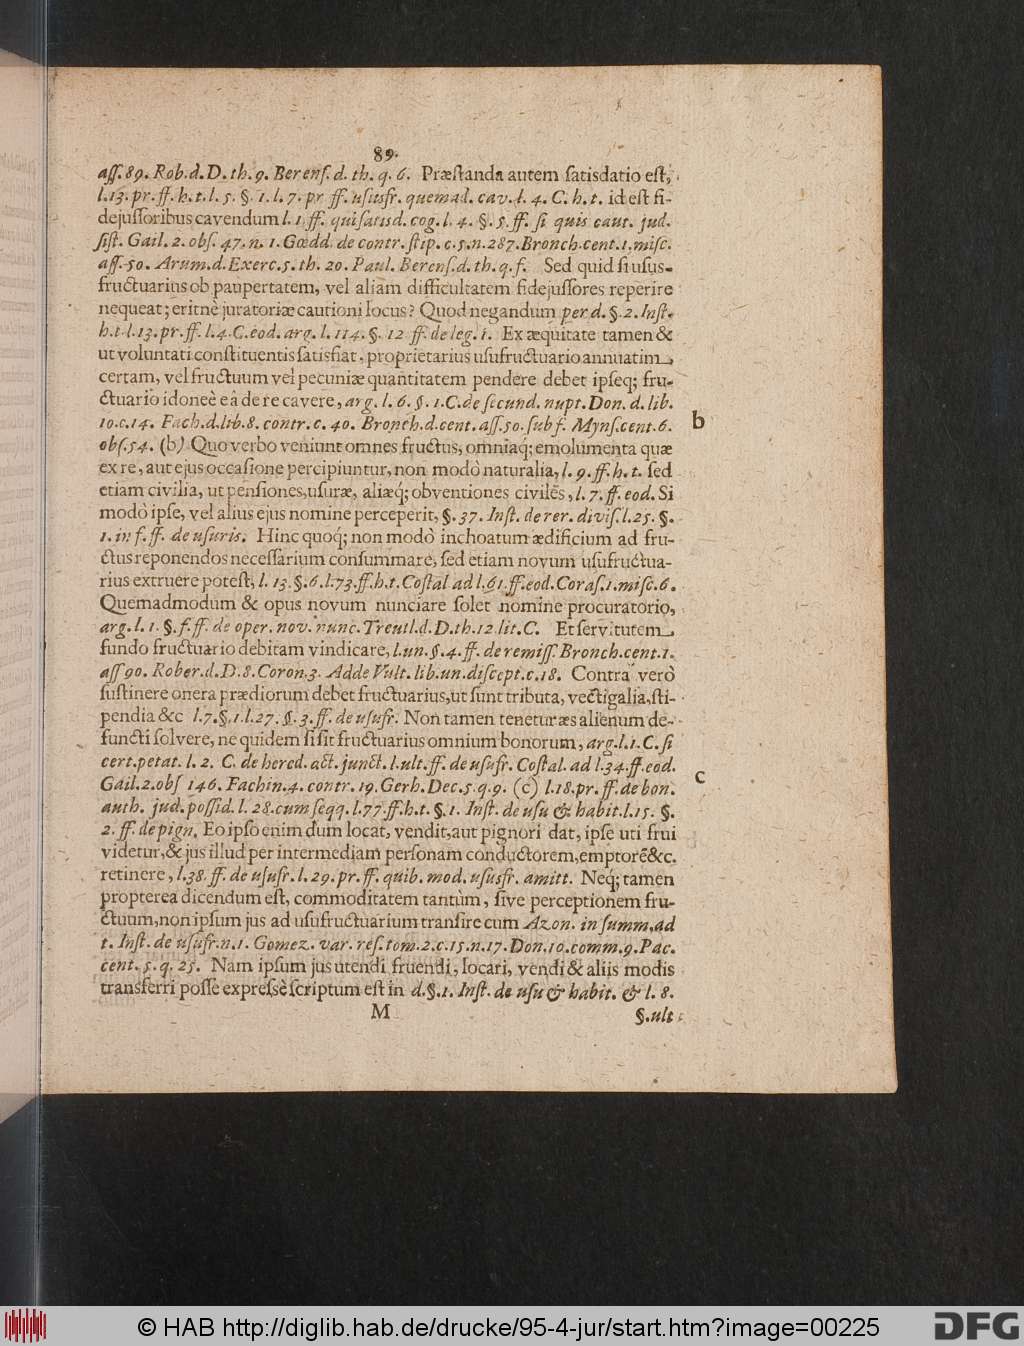 89.
aſſ. 89. Rob. d. D. th. 9. Berenſ. d. th. q. 6. Præſtanda autem ſatisdatio eſt,
l. 13. pr. ff. h. t. l. 5. §. 1. l. 7. pr ff. uſiusfr. quemad. cav. l. 4. C. h. t. id eſt fi-
dejuſſoribus cavendum l. 1. ff. qui ſatisd. cog. l. 4. §. 5. ff. ſi quis caut. jud.
ſiſt. Gail. 2. obſ. 47. n. 1. Gœdd. de contr. ſtip. c. 5. n. 287. Bronch. cent. 1. miſc.
aſſ. 50. Arum. d. Exerc. 5. th. 20. Paul. Berenſ. d. th. q. f. Sed quid ſi uſus-
fructuarius ob paupertatem, vel aliam difficultatem fidejuſſores reperire
nequeat; eritnè juratoriæ cautioni locus? Quod negandum per d. §. 2. Inſt.
h. t. l. 13. pr. ff. l. 4. C. eod. arg. l. 114. §. 12 ff. de leg. 1. Ex æquitate tamen &
ut voluntati conſtituentis ſatisfiat, proprietarius uſufructuario annuatim
certam, vel fructuum vel pecuniæ quantitatem pendere debet ipſeq; fru-
ctuario idoneè ea de re cavere, arg. l. 6. §. 1. C. de ſecund. nupt. Don. d. lib.
10. c. 14. Fach. d. lib. 8. contr. c. 40. Bronch. d. cent. aſſ. 50. ſub f. Mynſ. cent. 6.
b
obſ. 54. (b) Quo verbo veniunt omnes fructus, omniaq́; emolumenta quæ
ex re, aut ejus occaſione percipiuntur, non modò naturalia, l. 9. ff. h. t. ſed
etiam civilia, ut penſiones, uſuræ, aliæq́; obventiones civiles, l. 7. ff. eod. Si
modò ipſe, vel alius ejus nomine perceperit, §. 37. Inſt. de rer. diviſ. l. 25. §.
1. in f. ff. de uſuris. Hinc quoq́; non modò inchoatum ædificium ad fru-
ctus reponendos neceſſarium conſummare, ſed etiam novum uſufructua-
rius extruere poteſt, l. 13. §. 6. l. 73. ff. h. t. Coſtal ad l. 61. ff. eod. Coraſ. 1. miſc. 6.
Quemadmodum & opus novum nunciare ſolet nomine procuratorio,
arg. l. 1. §. f. ff. de oper. nov. nunc. Treutl. d. D. th. 12 lit. C. Et ſervitutem
fundo fructuario debitam vindicare, l. un. §. 4. ff. de remiſſ. Bronch. cent. 1.
aſſ 90. Rober. d. D. 8. Coron. 3. Adde Vult. lib. un. diſcept. c. 18. Contra verò
ſuſtinere onera prædiorum debet fructuarius, ut ſunt tributa, vectigalia, ſti-
pendia &c l. 7. §. 1. l. 27. §. 3. ff. de uſufr. Non tamen tenetur æs alienum de-
functi ſolvere, ne quidem ſi ſit fructuarius omnium bonorum, arg. l. 1. C. ſi
cert. petat. l. 2. C. de hered. act. junct. l. ult. ff. de uſufr. Coſtal. ad l. 34. ff. eod.
Gail. 2. obſ 146. Fachin. 4. contr. 19. Gerh. Dec. 5. q. 9. (c) l. 18. pr. ff. de bon.
c
auth. jud. poſſid. l. 28. cum ſeqq. l. 77. ff. h. t. §. 1. Inſt. de uſu & habit. l. 15. §.
2. ff. de pign. Eo ipſo enim dum locat, vendit, aut pignori dat, ipſe uti frui
videtur, & jus illud per intermediam perſonam conductorem, emptorē &c.
retinere, l. 38. ff. de uſufr. l. 29. pr. ff. quib. mod. uſusfr. amitt. Neq́; tamen
propterea dicendum eſt, commoditatem tantùm, ſive perceptionem fru-
ctuum, non ipſum jus ad uſufructuarium tranſire cum Azon. in ſumm. ad
t. Inſt. de uſufr. n. 1. Gomez. var. reſ. tom. 2. c. 15. n. 17. Don. 10. comm. 9. Pac.
cent. 5. q. 25. Nam ipſum jus utendi fruendi, locari, vendi & aliis modis
transferri poſſe expreſsè ſcriptum eſt in d. §. 1. Inſt. de uſu & habit. & l. 8.
M
§. ult
© HAB http://diglib.hab.de/drucke/95-4-jur/start.htm?image=00225
DFG